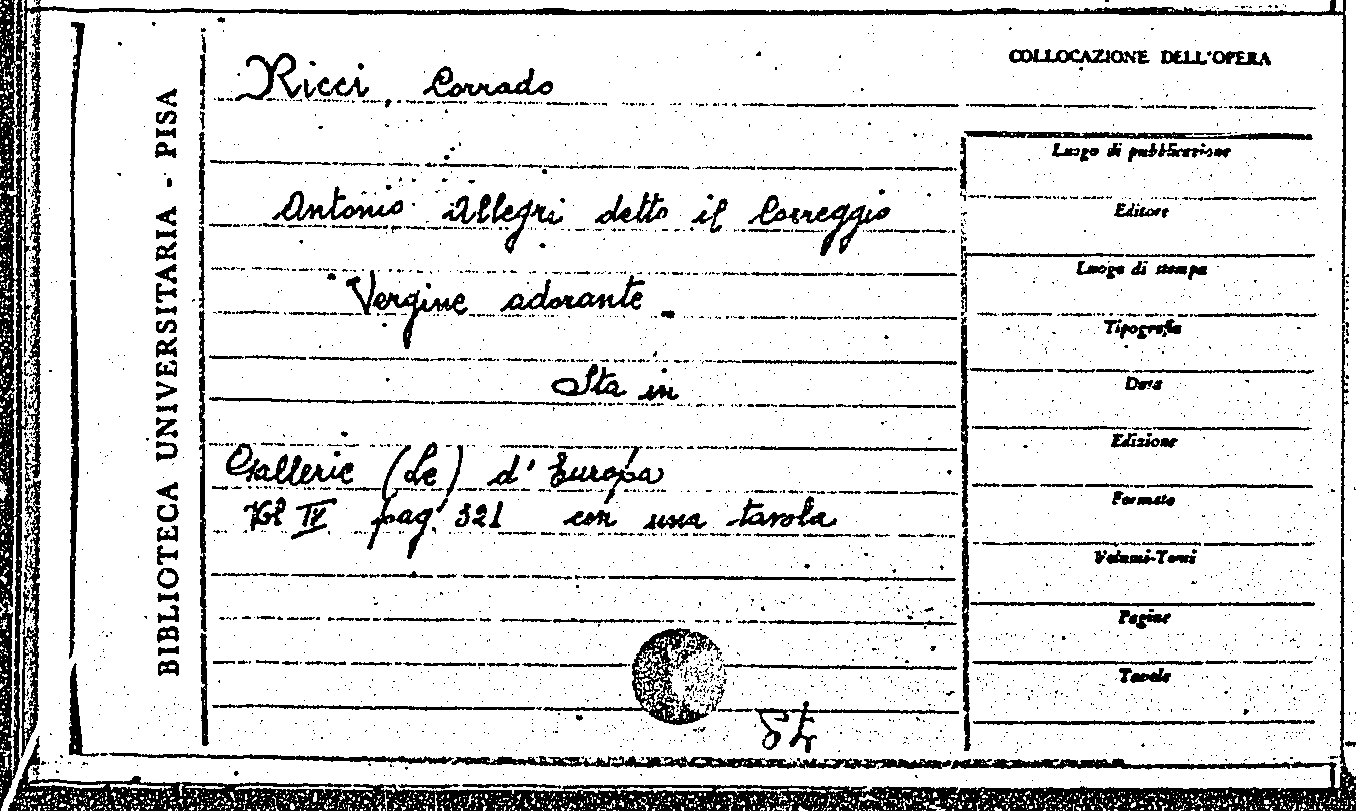 BIBLIOTECA UNIVERSITARIA - PISA
Ricci, Corrado
Antonio Allegri detto il Correggio
Vergine adorante
Sta in
Gallerie (Le) d'Europa
Vol IV pag. 321 con una tavola
COLLOCAZIONE DELL'OPERA
Luogo di pubblicazione
Editore
Luogo di stampa
Tipografia
Data
Edizione
Formato
Volumi-Tomi
Pagine
Tavole